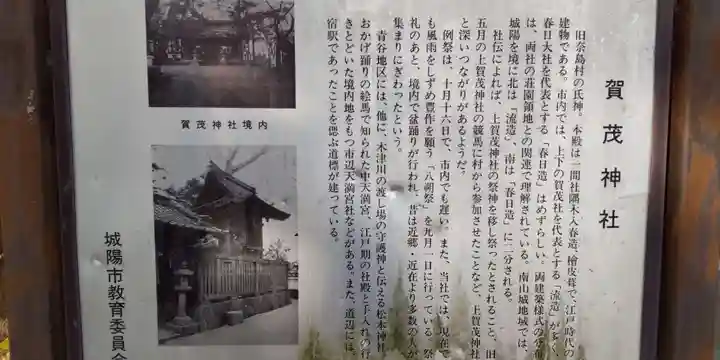 賀茂神社
旧奈島村の氏神。本殿は一間社隅木入春造、檜皮葺で、江戸時代
建物である。市内では、上下の賀茂社を代表とする「流造」が多く、
春日大社を代表とする「春日造」はめずらしい。両建築様式の分
は、両社の荘園領地との関連で理解されている。南山城地域では、
城陽を境に北は「流造」、南は「春日造」に二分される。
社伝によれば、上賀茂神社の祭神を移し祭ったとされること、旧
五月の上賀茂神社の競馬に村から参加させたことなど、上賀茂神社
と深いつながりがあるようだ。
例祭は、十月十六日で、市内でも遅い。また、当社では、現在で
も風雨をしずめ豊作を願う「八朔祭」を九月一日に行っている。祭
礼のあと、境内で盆踊りが行われ、昔は近郷・近在より多数の人が
集まりにぎわったという。
青谷地区には、他に、木津川の渡し場の守護神と伝える松本神社、
おかげ踊りの絵馬で知られた中天満宮、江戸期の社殿と手入れの行
きとどいた境内地をもつ市辺天満宮社などがある。また、道辺には、
宿駅であったことを偲ぶ道標が建っている。
賀茂神社境内
城陽市教育委員会